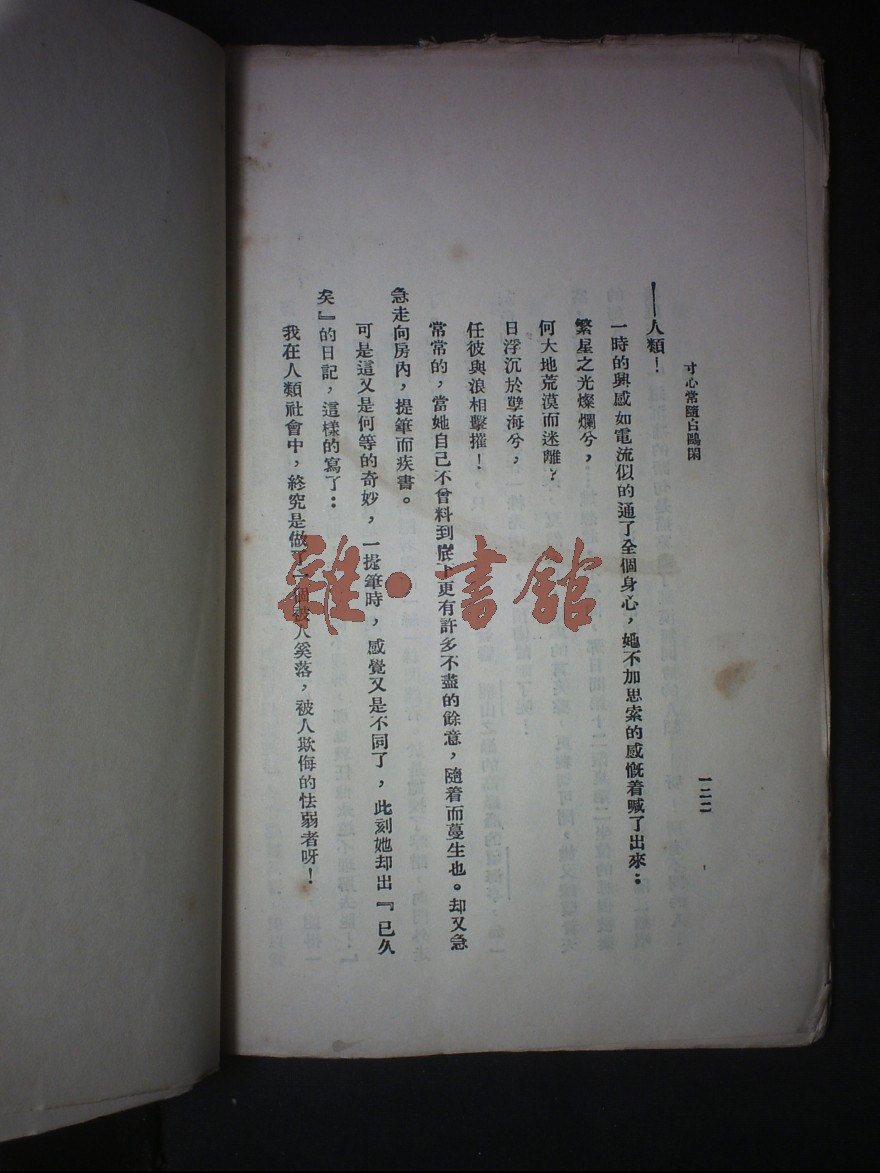 寸心常隨白鷗閑
一二二
——人類！
一時的興感如電流似的通了全個身心，她不加思索的感慨着喊了出來：
繁星之光燦爛兮，
何大地荒漠而迷離？
日浮沉於孽海兮，
任彼與浪相擊摧！
常常的，當她自己不曾料到底下更有許多不盡的餘意，隨着而蔓生也。却又急
急走向房內，提筆而疾書。
可是這又是何等的奇妙，一提筆時，感覺又是不同了，此刻她却出『已久
矣』的日記，這樣的寫了：
我在人類社會中，終究是做了一個被人奚落，被人欺侮的怯弱者呀！
雜·書館